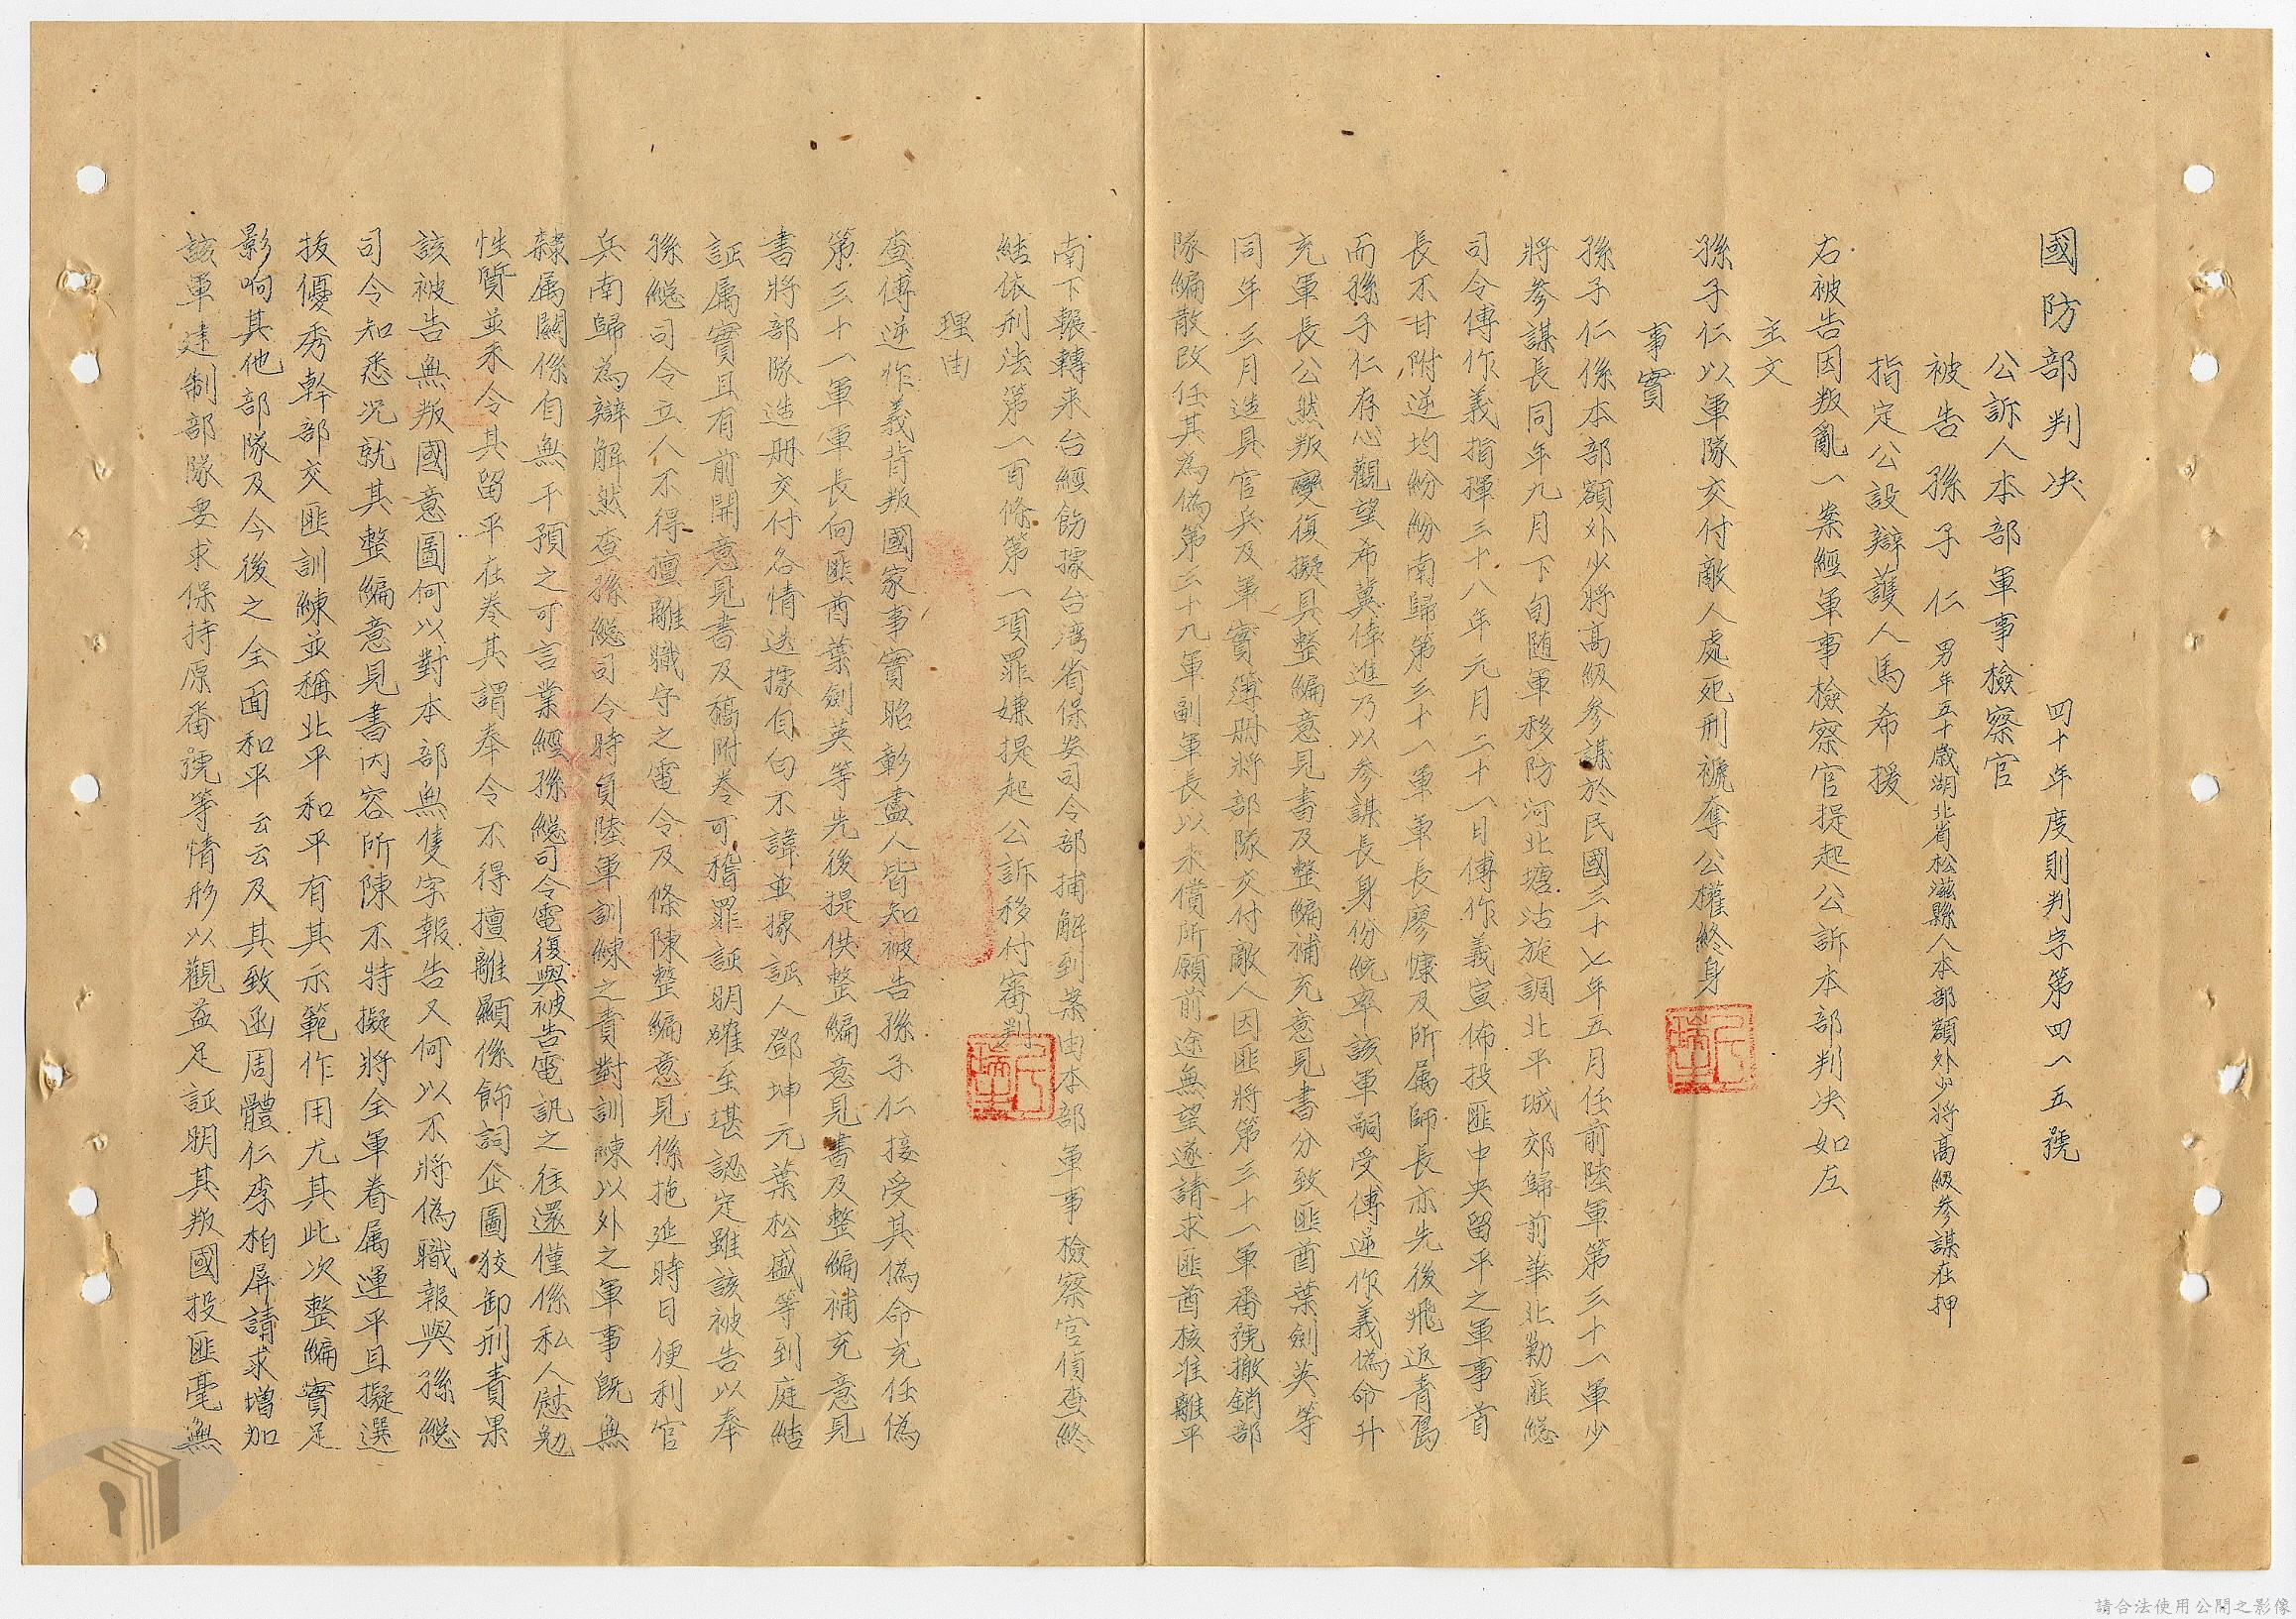 國防部判決
四十年度則判字第四一五號
公訴人本部軍事檢察官
被告 孫子仁 男年五十歲湖北省松滋縣人本部額外少將高級參謀在押
指定公設辯護人馬希援
右被告因叛亂一案經軍事檢察官提起公訴本部判決如左
主文
孫子仁以軍隊交付敵人處死刑褫奪公權終身
事實
孫子仁係本部額外少將高級參謀於民國三十七年五月任前陸軍第三十一軍少
將參謀長同年九月下旬随軍移防河北塘沽旋調北平城郊歸前華北勦匪總
司令傅作義指揮三十八年元月二十一日傅作義宣佈投匪中央留平之軍事首
長不甘附逆均紛紛南歸第三十一軍軍長廖慷及所属師長亦先後飛返青島
而孫子仁存心觀望希冀倖進乃以參謀長身份統率該軍嗣受傅逆作義偽命升
充軍長公然叛變復擬具整編意見書及整編補充意見書分致匪酋葉劍英等
同年三月造具官兵及軍實簿册將部隊交付敵人因匪將第三十一軍番號撤銷部
隊編散改任其為偽第三十九軍副軍長以未償所願前途無望遂請求匪酋核准離平
南下輾轉来台經飭據台湾省保安司令部捕解到案由本部軍事檢察官偵查終
結依刑法第一百條第一項罪嫌提起公訴移付審判
理由
查傅逆作義背叛國家事實昭彰盡人皆知被告孫子仁接受其偽命充任偽
第三十一軍軍長向匪酋葉劍英等先後提供整編意見書及整編補充意見
書將部隊造册交付各情迭據自白不諱並據証人鄧坤元葉松盛等到庭結
証属實且有前開意見書及稿附卷可稽罪証明確至堪認定雖該被告以奉
孫總司令立人不得擅離職守之電令及條陳整編意見係拖延時日便利官
兵南歸為辯解然查孫總司令時負陸軍訓練之責對訓練以外之軍事既無
隸属關係自無干預之可言業經孫總司令電復與被告電訊之往還僅係私人慰勉
性質並未令其留平在卷其謂奉令不得擅離顯係飾詞企圖狡卸刑責果
該被告無叛國意圖何以對本部無隻字報告又何以不將偽職報與孫總
司令知悉况就其整編意見書内容所陳不特擬將全軍眷属運平且擬選
拔優秀幹部交匪訓練並稱北平和平有其示範作用尤其此次整編實足
影响其他部隊及今後之全面和平云云及其致函周體仁李柏屏請求增加
該軍建制部隊要求保持原番號等情形以觀益足証明其叛國投匪毫無
請合法使用公開之影像